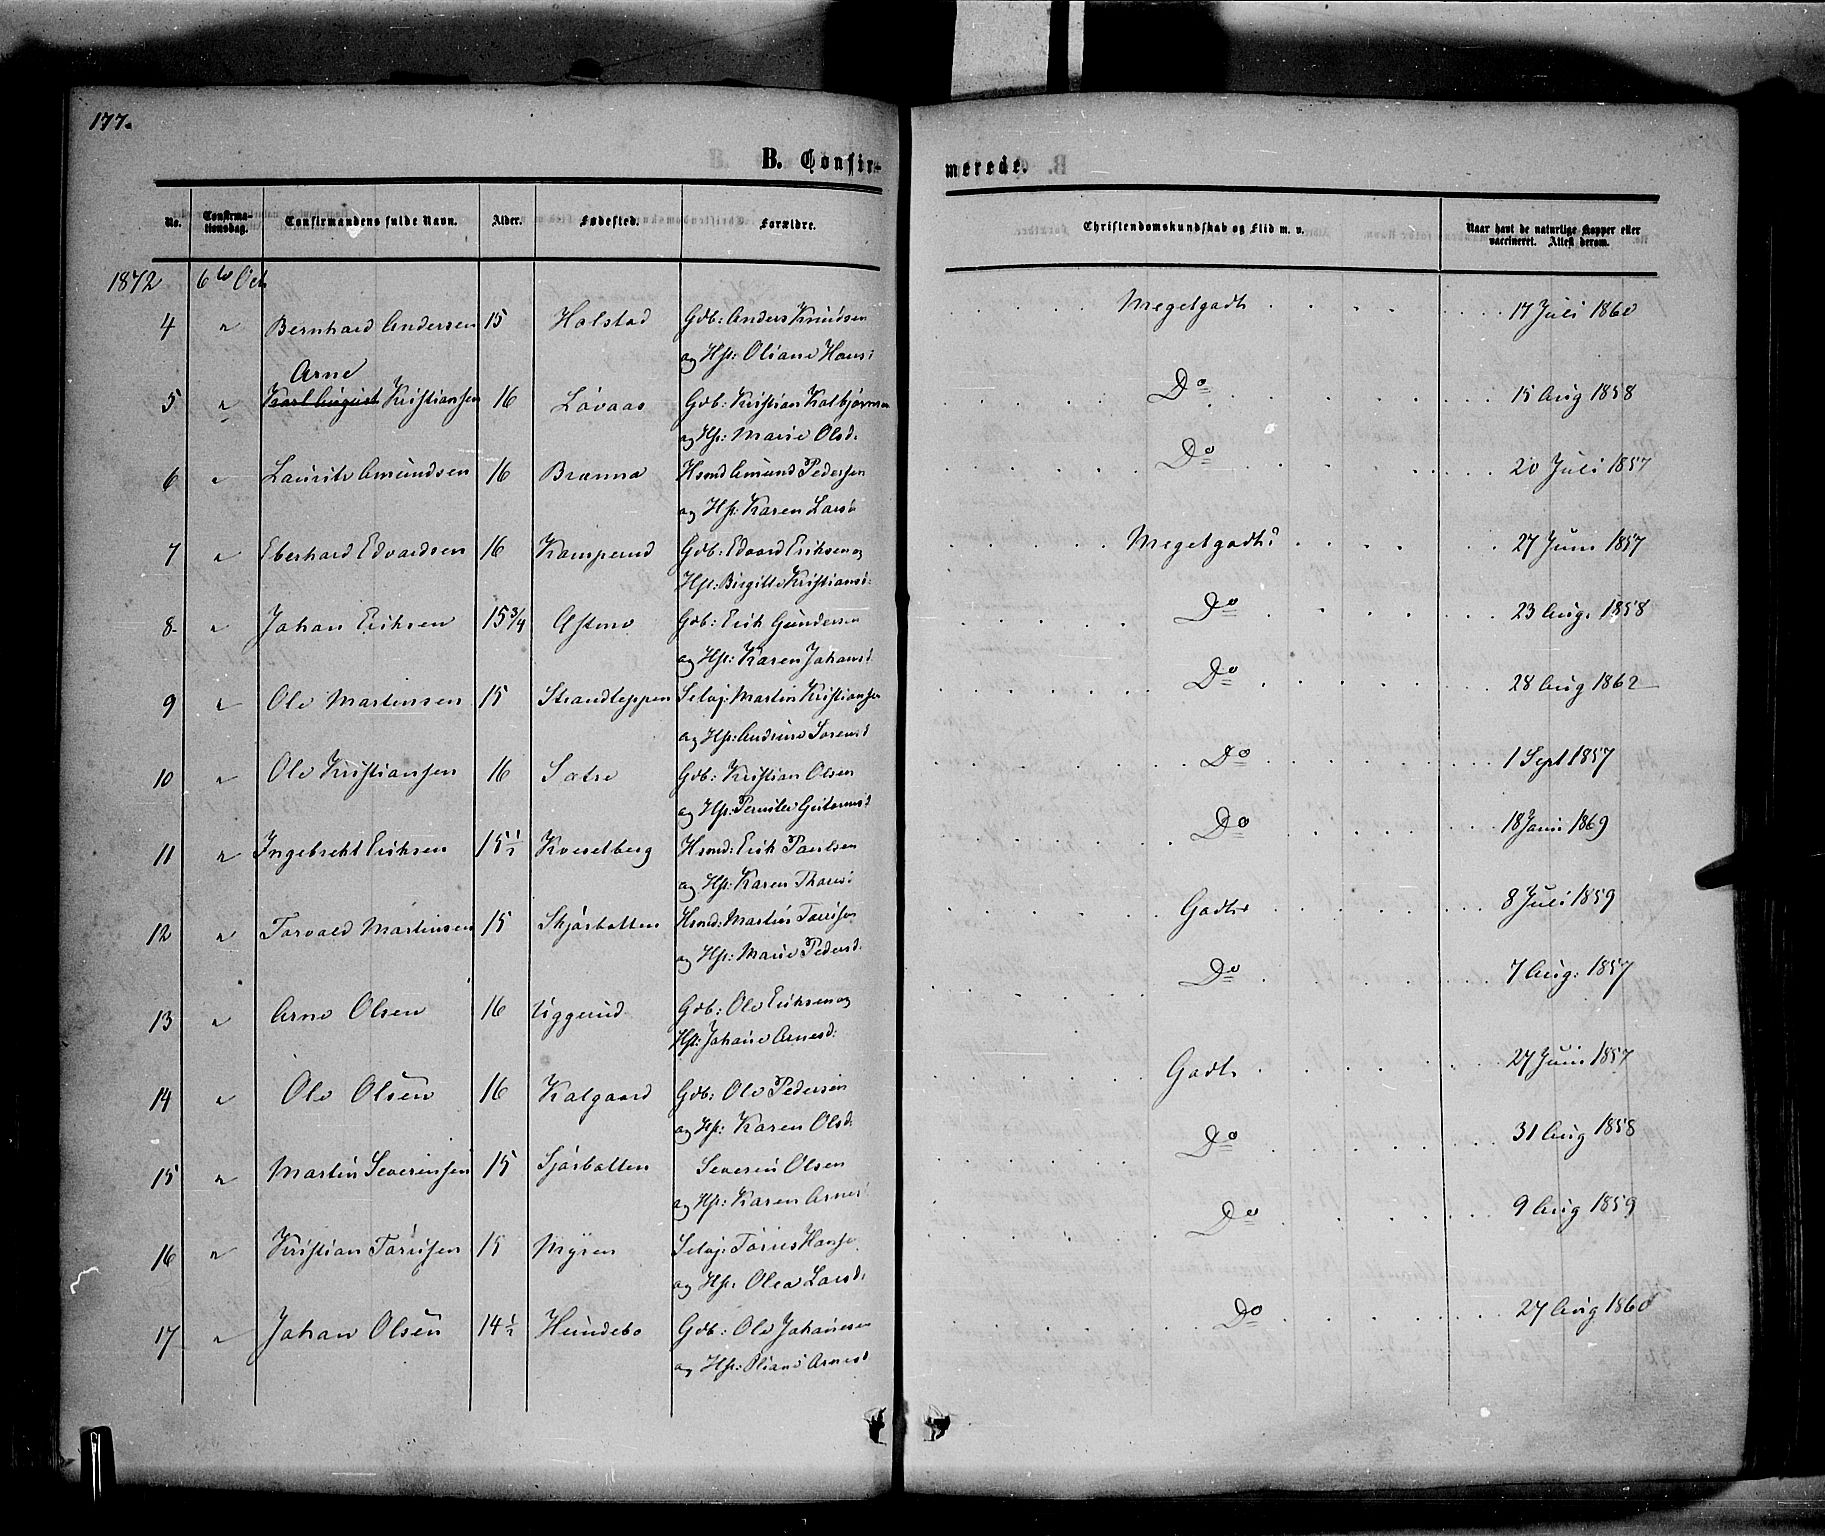 177.
B. Confir-
merede.
No.
Confirma-
tionsdag.
Confirmandens fulde Navn.
Alder.
Fødested.
Forældre.
Christendomskundskab og Flid m. v.
Naar havt de naturlige Kopper eller
vaccineret. Attest derom.
1872 6te Oct
4 " Bernhard Andersen 15 Holstad Gdb: Anders Knudsen Megetgodt 17 Juli 1860
og Hst: Oliane Hans:
Arne
5 " Karl August Kristiansen 16 Løvaas Gdb: Kristian Kolbjørnsen Do 15 Aug 1858
og Hst: Marie Olsd.
6 " Laurits Amundsen 16 Brænna Hsmd Amund Pedersen Do 20 Juli 1857
og Hst: Karen Larsd
7 " Eberhard Edvardsen 16 Kamperud Gdb: Edvard Eriksen og Megetgodt 27 Juni 1857
Hst: Birgitte Kristians:
8 " Johan Eriksen 15 3/4 Gdb: Erik Gundersen Do 23 Aug. 1858
og Hst: Karen Johansd
9 " Ole Martinsen 15 Strandteppen Selvj: Martin Kristiansen Do 28 Aug 1862
og Hst: Andrine Sørensd
10 " Ole Kristiansen 16 Sætre Gdb: Kristian Olsen Do 1 Sept 1857
og Hst: Pernille Guttormsd
11 " Ingebreht Eriksen 15 1/2 Kveselberg Hsmd: Erik Paulsen Do 18 Juni 1869
og Hst: Karen Thores:
12 " Torvald Martinsen 15 Skjørbotten Hsmd: Martin Torrisen Godt 8 Juli 1859
og Hst: Marie Pedersd.
13 " Arne Olsen 16 Uggerud Gdb: Ole Eriksen og Do 7 Aug: 1857
Hst: Johane Arnesd:
14 " Ole Olsen 16 Kalgaard Gdb: Ole Pedersen Godt 27 Juni 1857
og Hst: Karen Olsd.
15 " Martin Severinsen 15 Sjørbotten Severin Olsen Do 31 Aug 1858
og Hst: Karen Arnes:
16 " Kristian Torrisen 15 Myren Selvj: Torris Hansen Do 9 Aug 1859
og Hst: Olea Larsd:
17 " Johan Olsen 14 1/2 Hundebo Gdb: Ole Johannesen Do 27 Aug 1860
og Hst: Oliane Arnesd